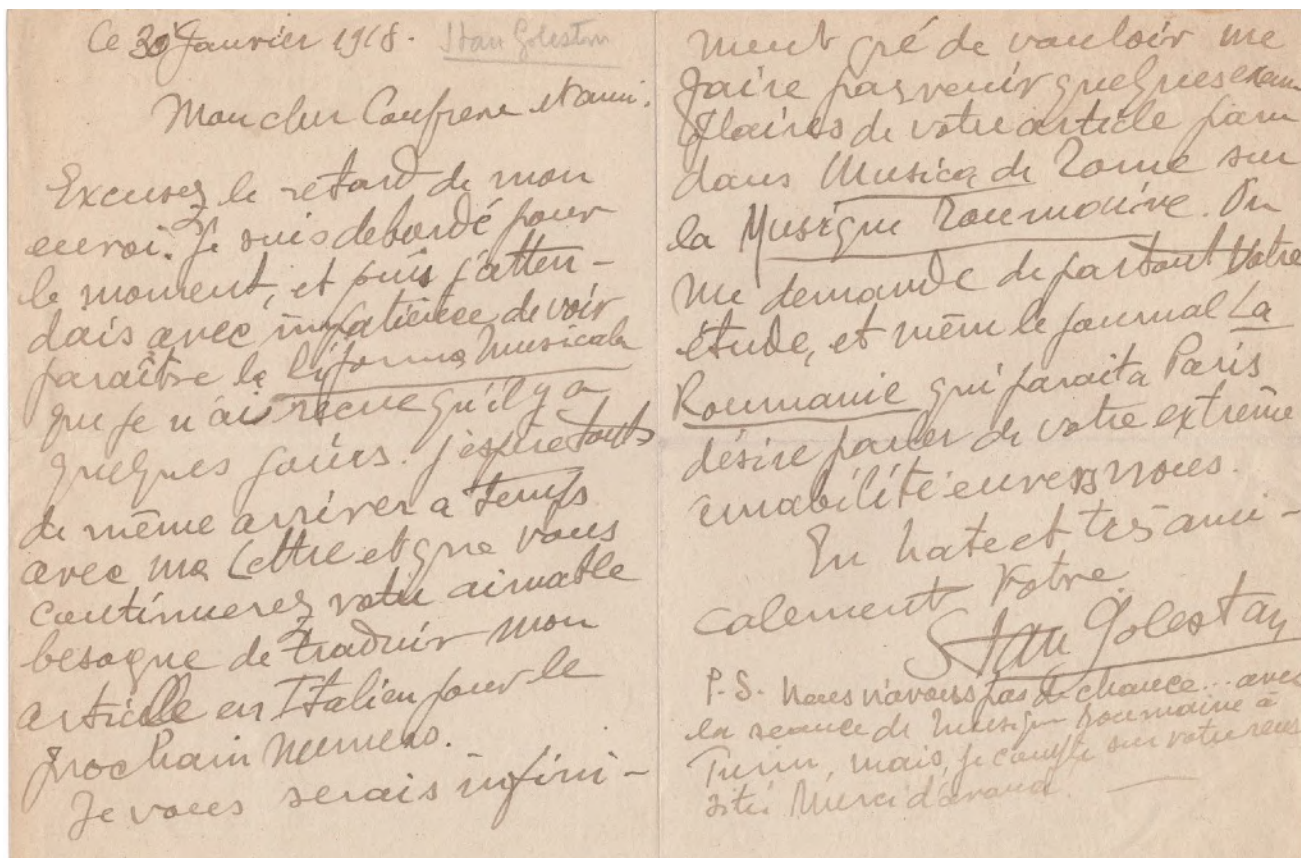 Ce 30 Janvier 1918. Stan Golestan
Mon cher Confrere et ami.
Excusez le retard de mon
envoi. Je suis debordé pour
le moment, et puis j'atten-
dais avec impatience de voir
paraître la Riforma Musicale
que je n'ai reçue qu'il y a
quelques jours. J'espère touts
de même arriver a temps
avec ma Lettre et que vous
continuerez votre aimable
besogne de traduir mon
article en Italien pour le
prochain numero.
Je vous serais infini-
ment gré de vouloir me
faire parvenir quelques exem
plaires de votre article paru
dans Musica de Rome sur
la Musique Roumaine. On
me demande de partout Votre
étude, et même le journal La
Roumanie qui parait a Paris
désire parler de votre extrême
amabilité envers nous.
En hate et très ami-
calement Votre
Stan Golestan
P.S. Nous n'avons pas de chance... avec
la seance de musique Roumaine à
Turin, mais, je compte sur votre reus
site. Merci d'avance